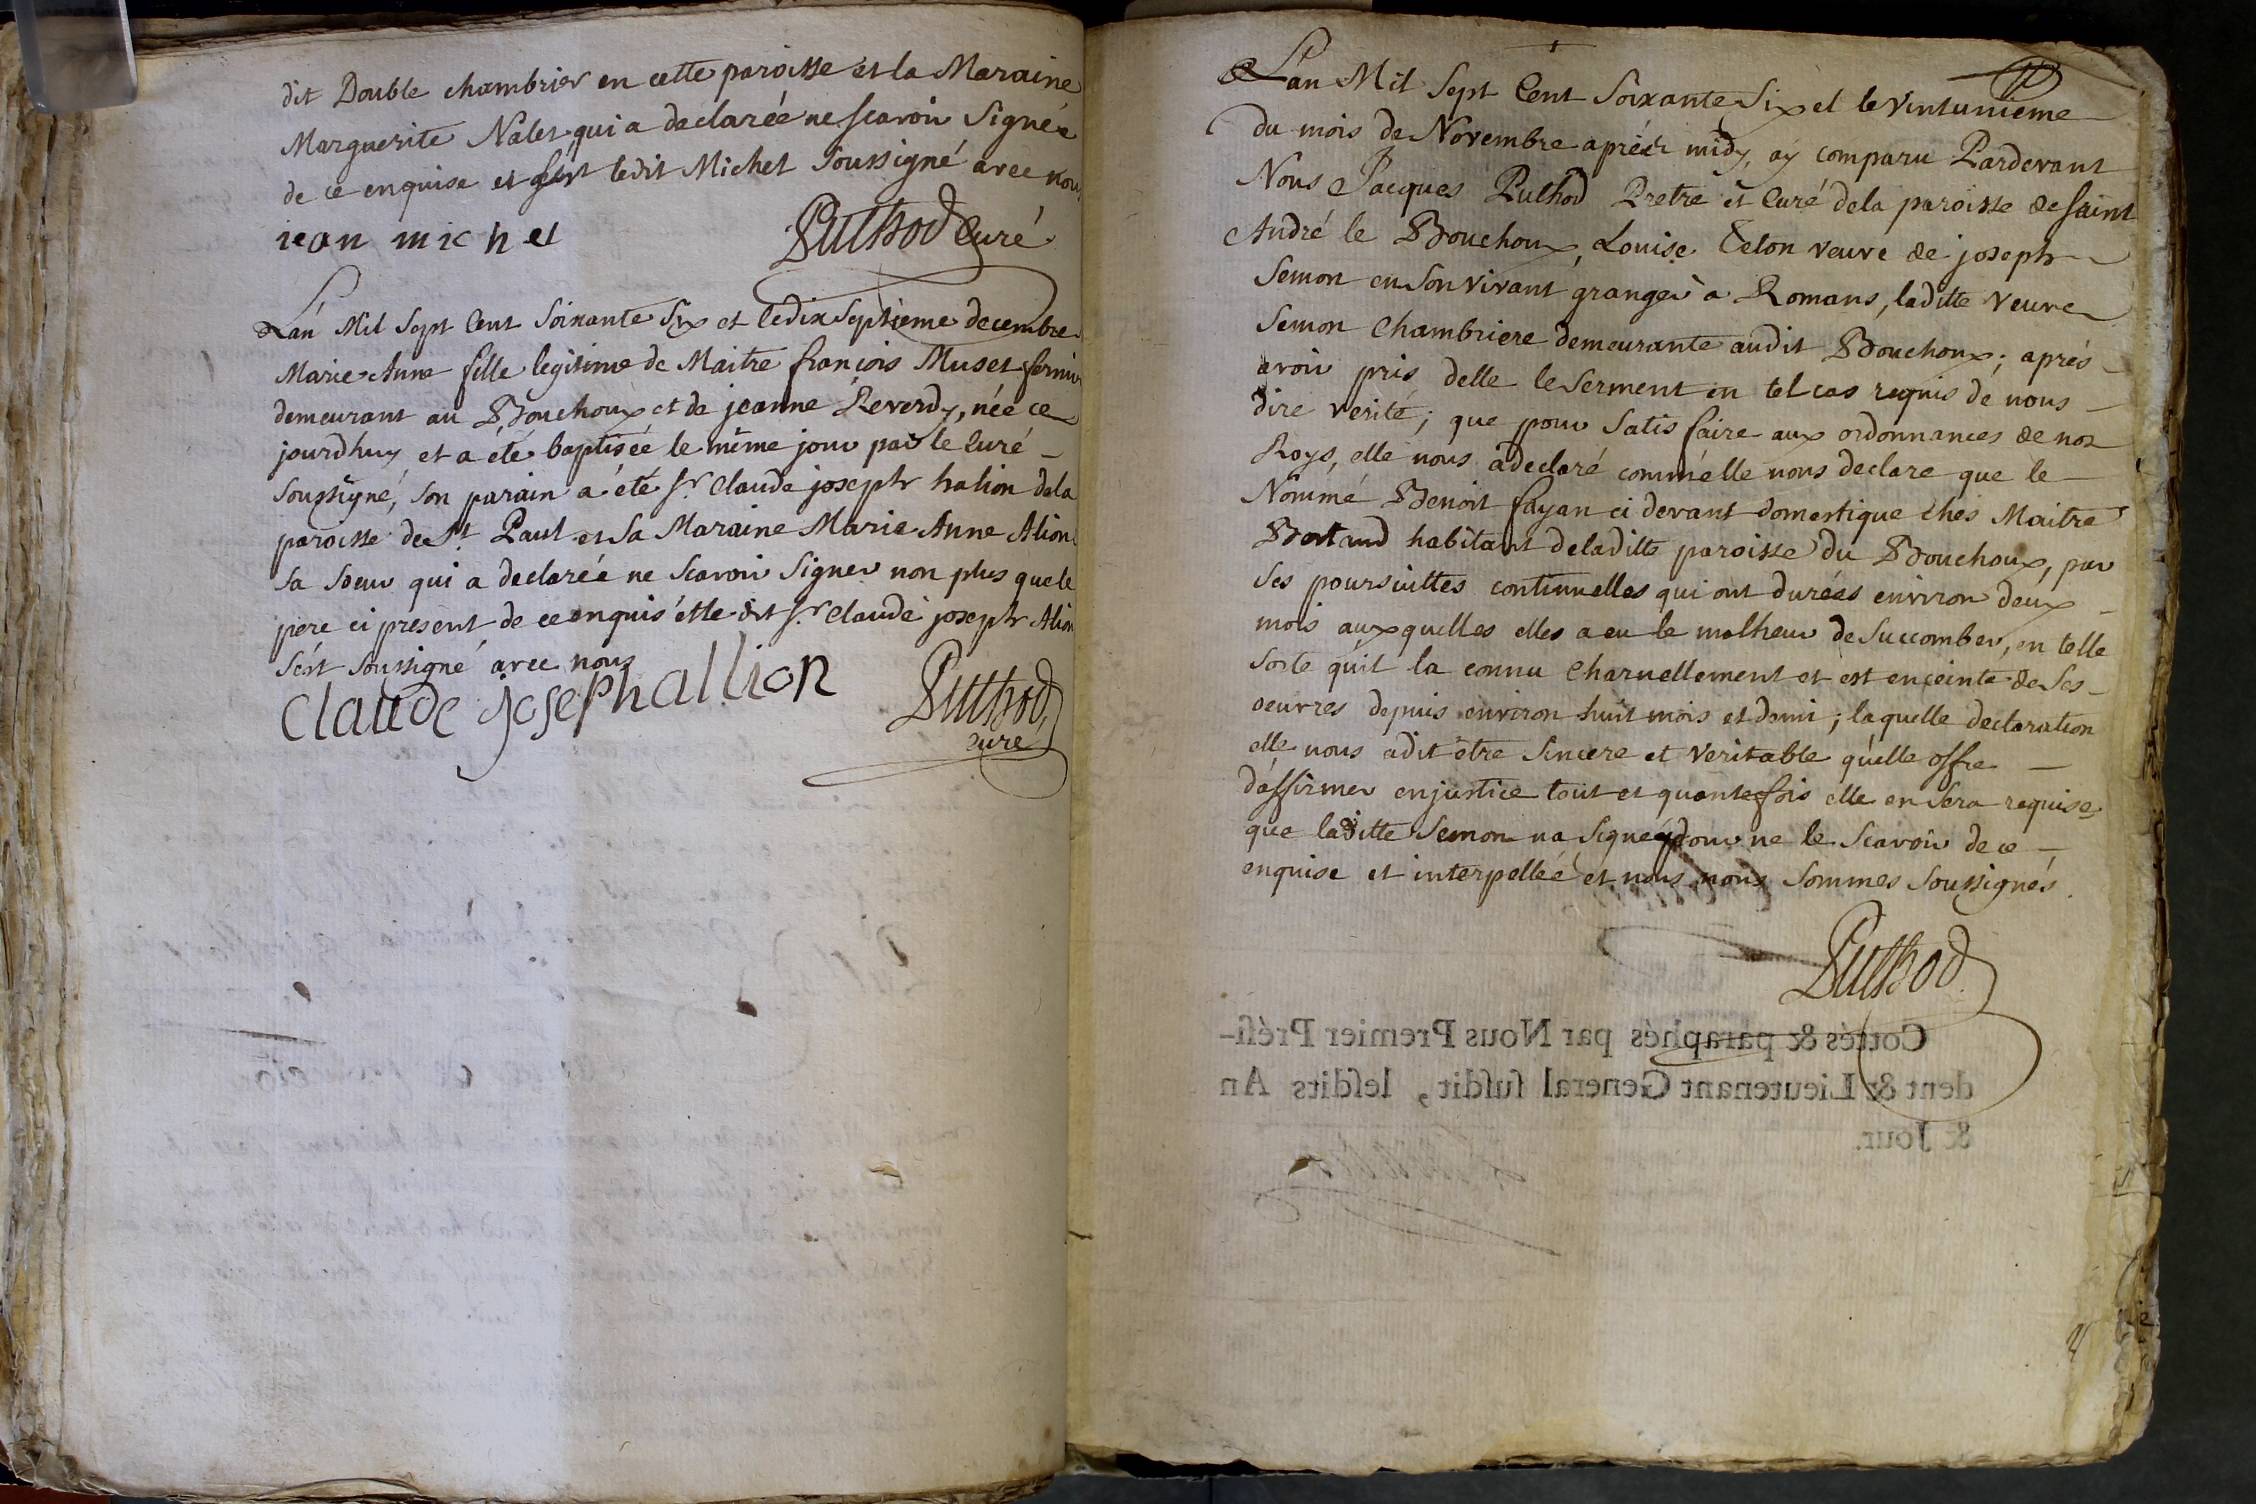 dit Double chambrier en cette paroisse et la Maraine
Marguerite Nalet qui a declareé ne scavoir Signée
de ce enquise et s'est ledit Michel Soussigné avec nous
iean michel
Puthod Curé
Lan Mil Sept Cent Soixante Six et le dix Septieme decembre
Marie Anne fille legitime de Maitre françois Muset fermier
demeurant au Bouchoux et de jeanne Reverdy, née ce
jourdhuy et a été baptisée le même jour par le Curé
Soussigné, Son parain a été Sr Claude joseph halion de la
paroisse de St Paul et Sa Maraine Marie Anne Alion
Sa Soeur qui a declareé ne Scavoir Signer non plus que le
pere ci present de ce enquis et le dit Sr Claude joseph Alion
Sést Soussigné avec nous
Claude joseph allion
Puthod
curé
Lan Mil Sept Cent Soixante Six et le vintunieme
du mois de Novembre aprés midy, aÿ comparu Pardevant
Nous Jacques Puthod Pretre et Curé dela paroisse de Saint
André le Bouchoux, Louise Telon veuve de joseph
Semon en Son vivant granger a Romans, laditte veuve
Semon Chambriere demeurante audit Bouchoux; aprés
avoir pris delle le Serment en tel cas requis de nous
dire verité; que pour Satisfaire aux ordonnances de nos
Roys, elle nous a declaré comme elle nous declare que le
Nommé Benoit fayan ci devant domestique chés Maitre
Bortaud habitant deladitte paroisse du Bouchoux, par
Ses poursuittes continuelles qui ont durées environ deux
mois auxquelles elles a eu le malheur de Succomber, en telle
Sorte quil la connu Charnellement et est enceinte de Ses
oeuvres depuis environ huit mois et demi; laquelle declaration
elle nous adit être Sincere et veritable quélle offre
dáffirmer en justice tout et quantefois elle en Sera requise
que laditte Semon na Signé pour ne le Scavoir de ce
enquise et interpelleé et nous nous Sommes Soussignés.
Puthod
Cottés & paraphés par Nous Premier Présidant
dent & Lieutenant General susdit, lesdits An
& Jour.